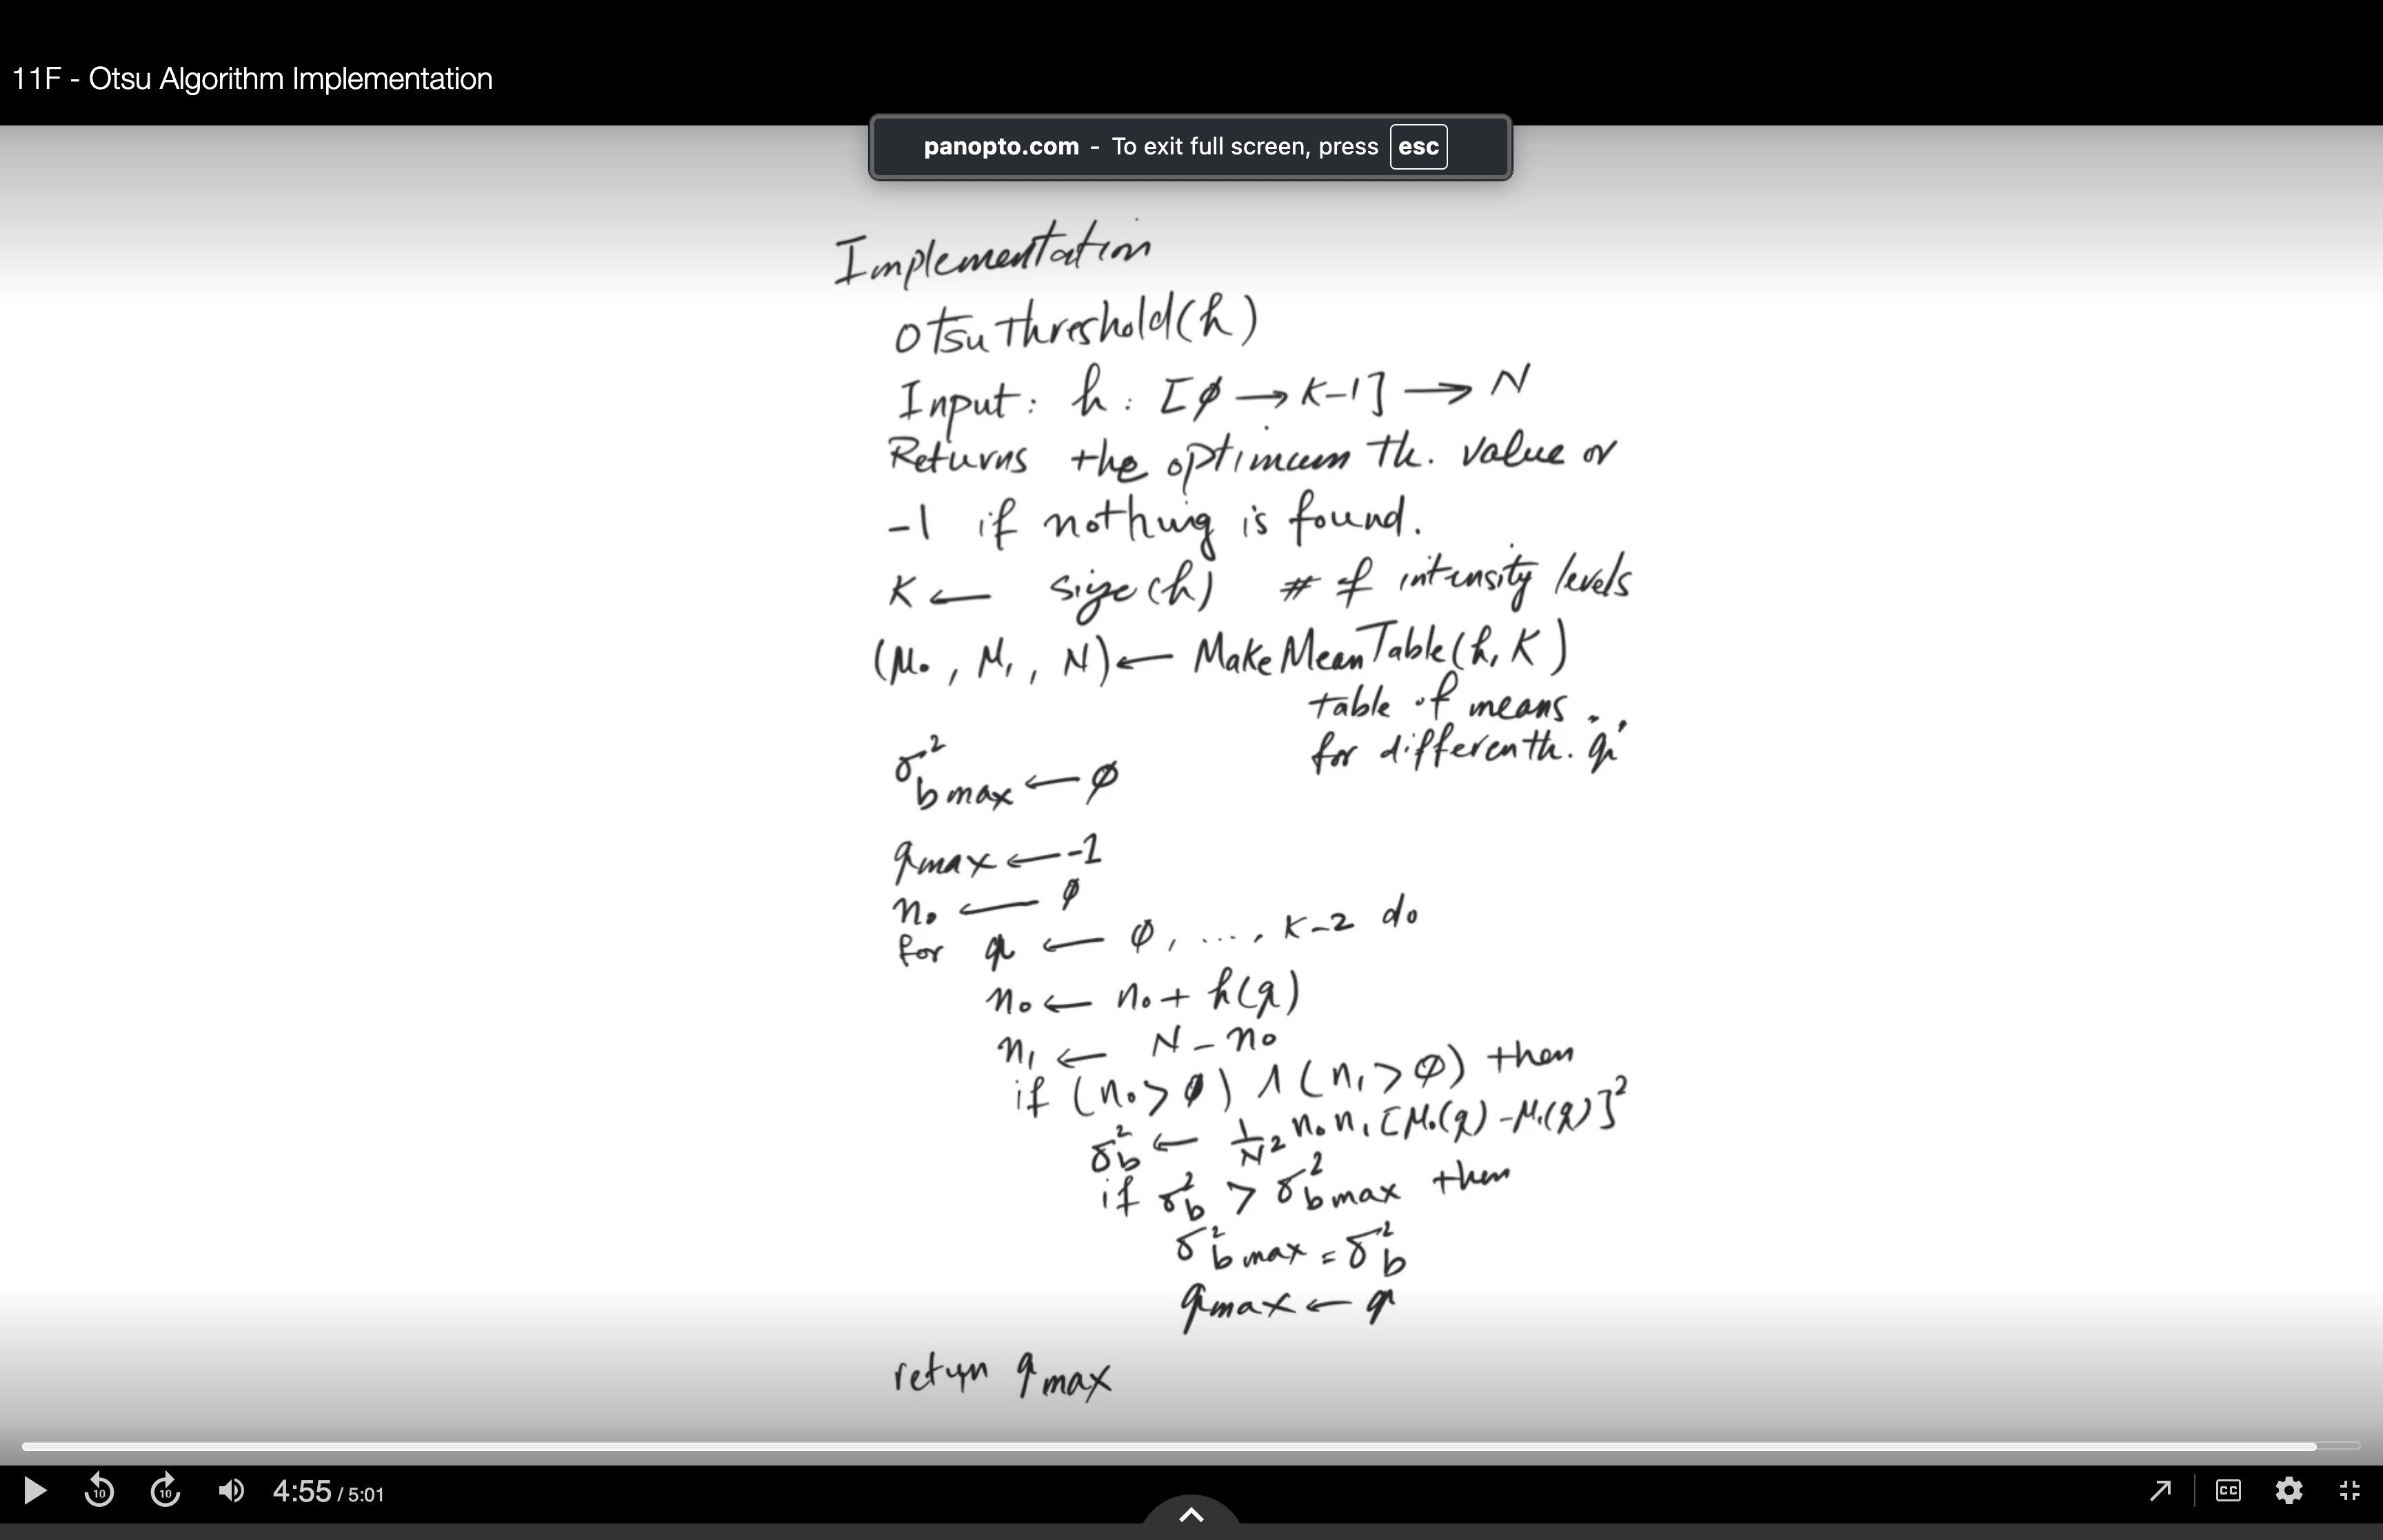 11F - Otsu Algorithm Implementation
panopto.com - To exit full screen, press esc
Implementation
OtsuThreshold(h)
Input: h : [ϕ → K-1] → N
Returns the optimum th. value or
-1 if nothing is found.
K ← size(h) # of intensity levels
(μ₀, μ₁, N) ← MakeMeanTable(h, K)
table of means
for differenth. q's
σ²b max ← ϕ
qmax ← -1
n₀ ← ϕ
for q ← ϕ, ..., K-2 do
n₀ ← n₀ + h(q)
n₁ ← N - n₀
if (n₀ > ϕ) ∧ (n₁ > ϕ) then
σ²b ← 1/N² n₀ n₁ [μ₀(q) - μ₁(q)]²
if σ²b > σ²b max then
σ²b max = σ²b
qmax ← q
return qmax
10
10
4:55 / 5:01
CC